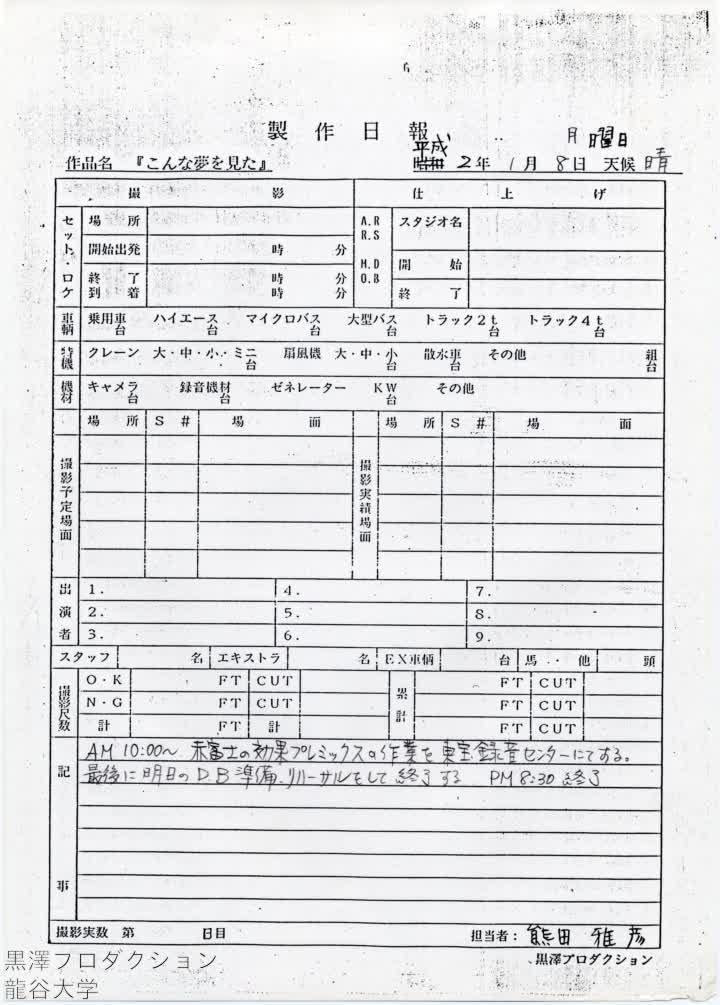 製作日報
月曜日
作品名 『こんな夢を見た』 平成 昭和 2年 1月 8日 天候 晴
撮影 仕上げ
セット・ロケ 場所 A.R R.S スタジオ名
開始出発 時 分
M.D O.B 開始
終了 到着 時 分 時 分
終了
車輌 乗用車 台 ハイエース 台 マイクロバス 台 大型バス 台 トラック2t 台 トラック4t 台
特機 クレーン 大・中・小・ミニ 台 扇風機 大・中・小 台 散水車 台 その他 組 台
機材 キャメラ 台 録音機材 台 ゼネレーター KW 台 その他
場所 S# 場面 場所 S# 場面
撮影予定場面 撮影実績場面
出演者
1. 4. 7.
2. 5. 8.
3. 6. 9.
スタッフ 名 エキストラ 名 EX車輌 台 馬・他 頭
撮影尺数 O・K FT CUT 累計 FT CUT
N・G FT CUT FT CUT
計 FT 計 FT CUT
記事
AM 10:00〜 赤富士の効果プレミックスの作業を東宝録音センターにてする。
最後に明日のD.B準備、リハーサルをして終了する PM 8:30 終了
撮影実数 第 日目 担当者:熊田 雅彦
黒澤プロダクション
黒澤プロダクション
龍谷大学